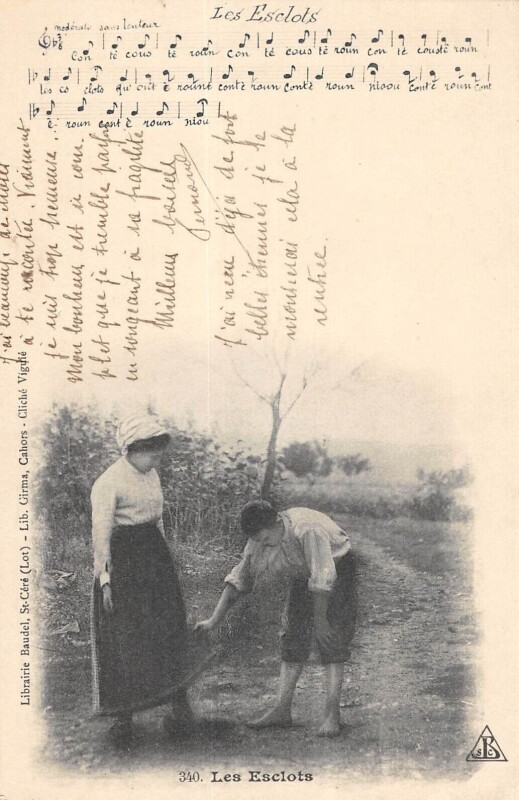 Les Esclots
modérato sans lenteur
Con té cous té roun con té cous té roun con té cousté roun
les es clots qu'ont é rount conté roun conté roun niou conté roun cont
é roun cont é roun niou
J'ai beaucoup de choses
à te raconter. Vraiment
je suis trop heureuse.
mon bonheur est si com-
plet que je tremble parfois
en songeant à sa fragilité
Meilleurs baisers
Fernande
J'ai reçu déjà de fort
belles étrennes je te
montrerai cela à la
rentrée.
Librairie Baudel, St-Céré (Lot) - Lib. Girma, Cahors - Cliché Viguié
340. Les Esclots
B
S C